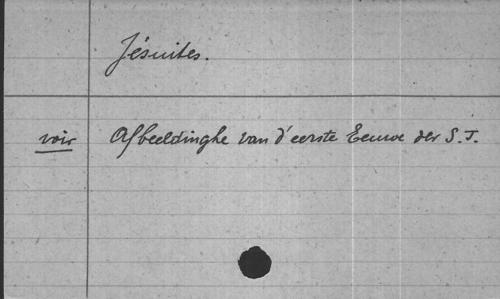 Jésuites.
voir Afbeeldinghe van d'eerste Eeuwe der S.J.